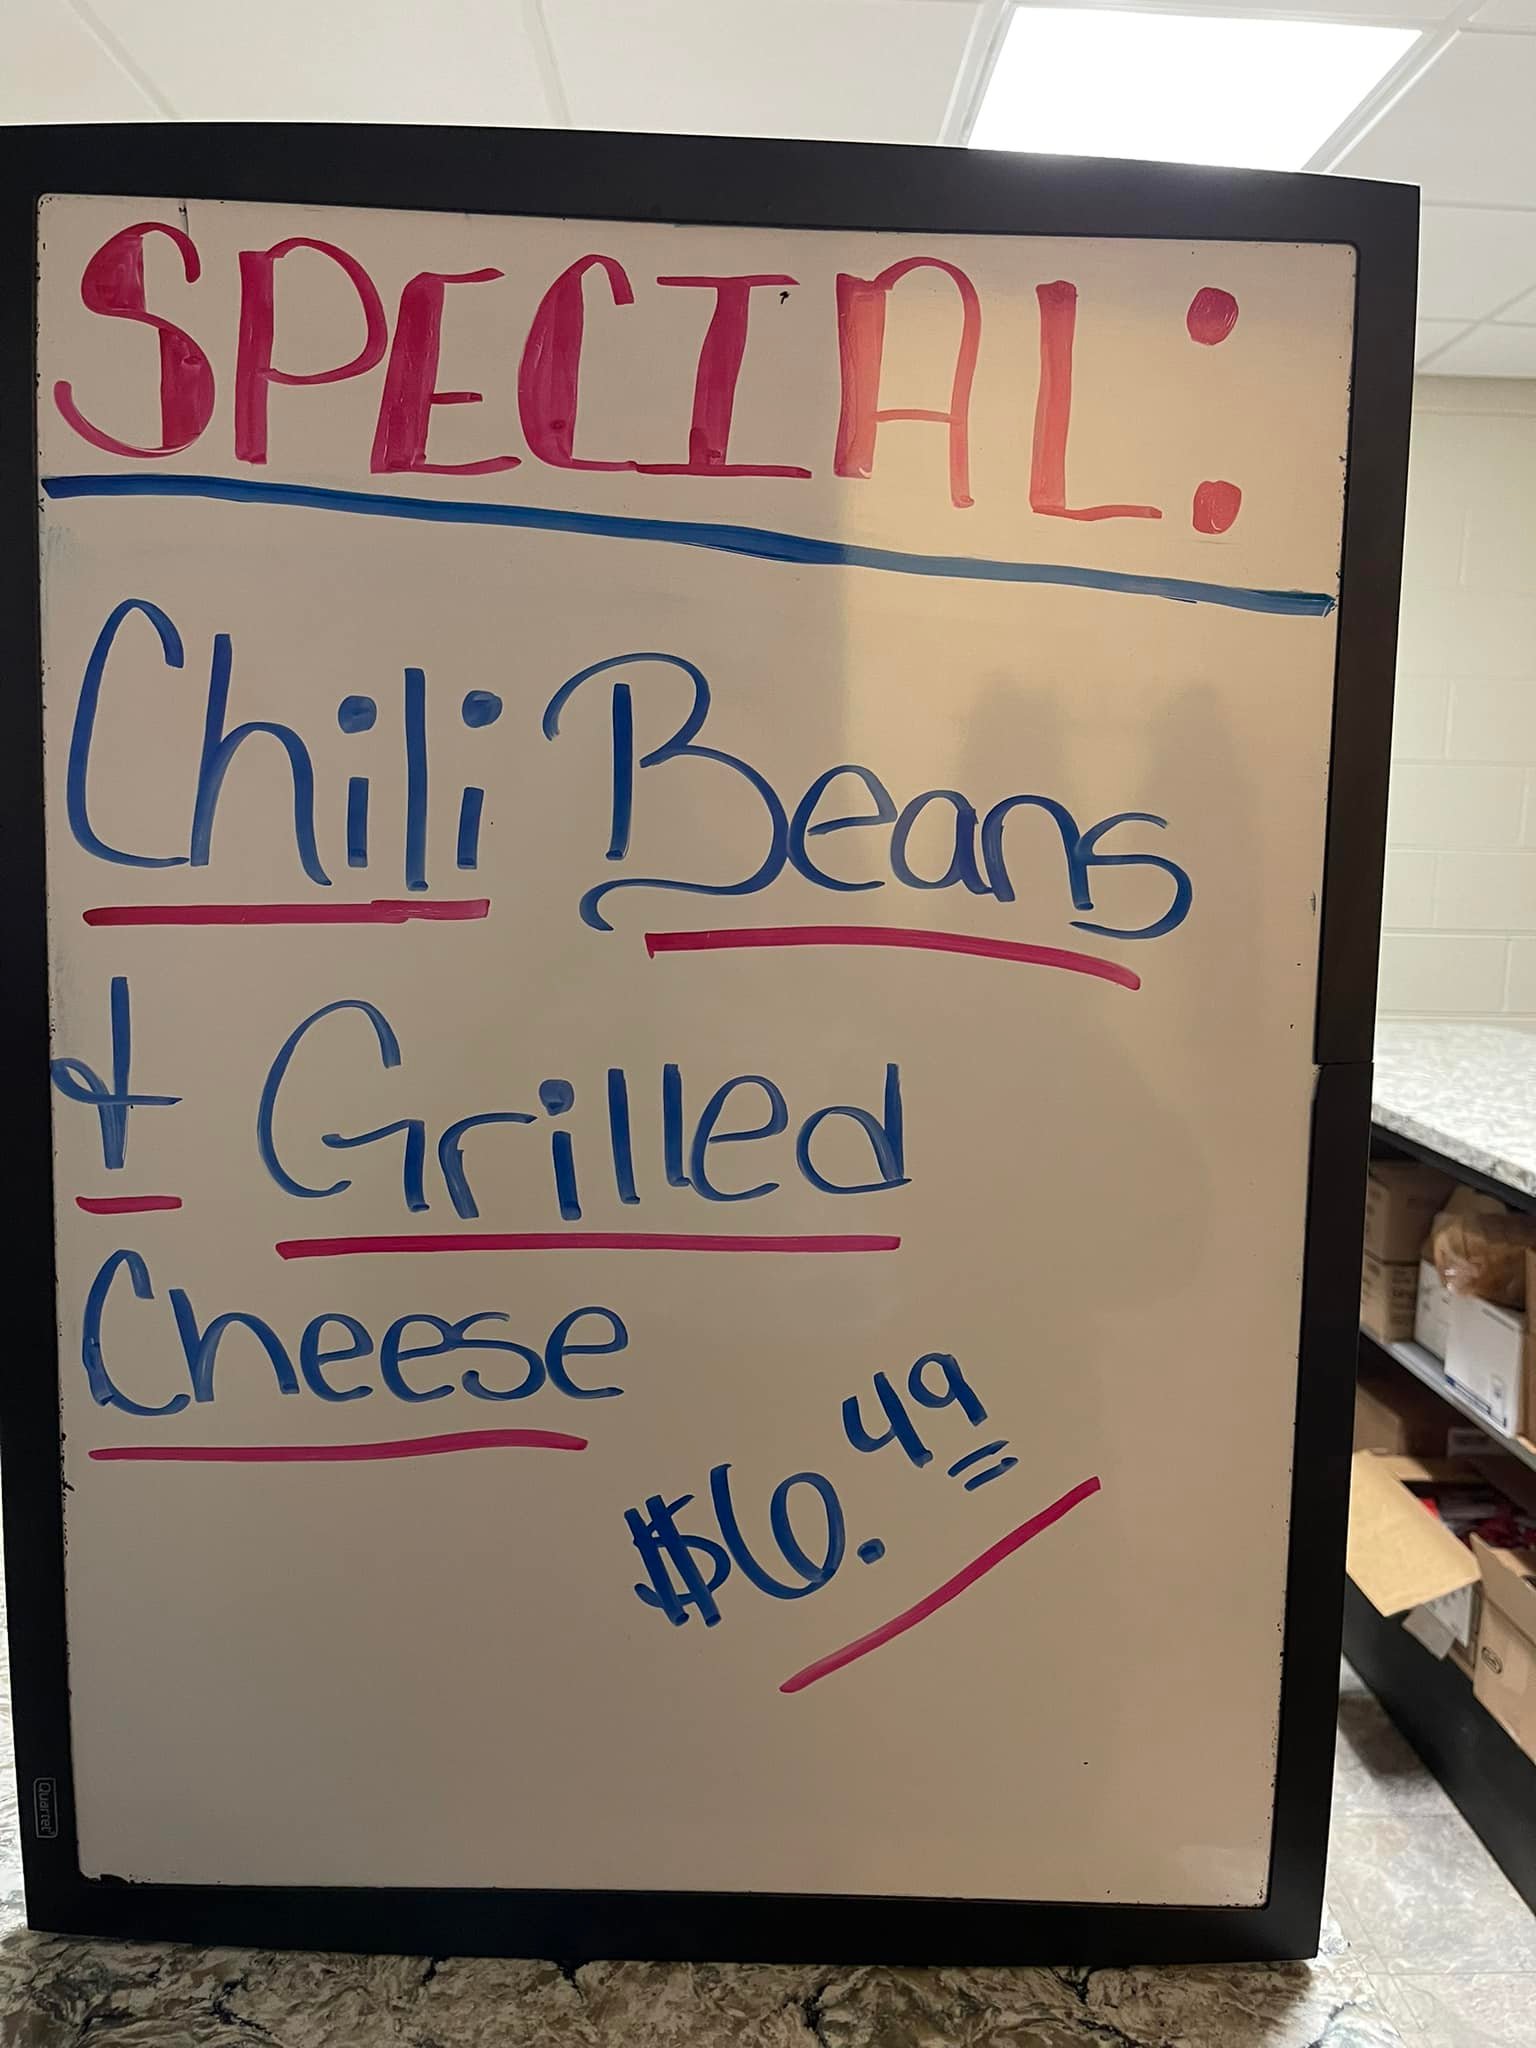 SPECIAL:
Chili Beans
& Grilled
Cheese
$6.49
Quartet